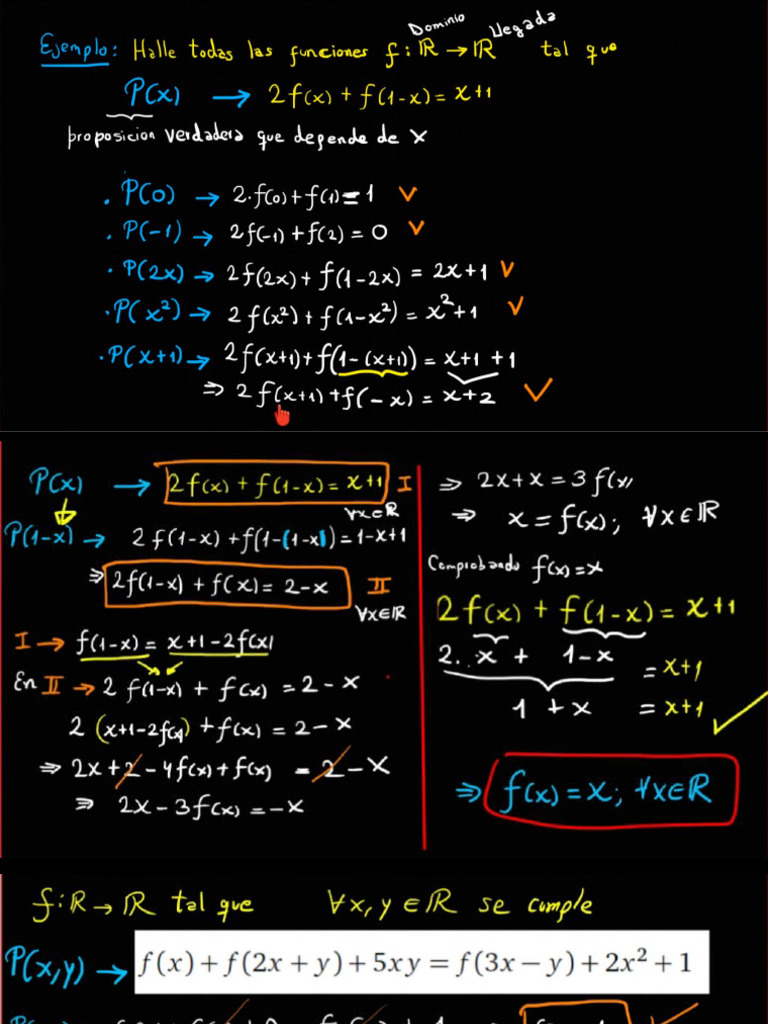 Ejemplo: Halle todas las funciones f: ℝ → ℝ tal que
Dominio
llegada
P(x) → 2f(x) + f(1-x) = x+1
proposicion verdadera que depende de x
. P(0) → 2.f(0) + f(1) = 1 ✓
. P(-1) → 2f(-1) + f(2) = 0 ✓
. P(2x) → 2f(2x) + f(1-2x) = 2x+1 ✓
. P(x²) → 2f(x²) + f(1-x²) = x²+1 ✓
. P(x+1) → 2f(x+1) + f(1-(x+1)) = x+1+1
⇒ 2f(x+1) + f(-x) = x+2 ✓
P(x) → 2f(x) + f(1-x) = x+1 I
∀x∈ℝ
P(1-x) → 2f(1-x) + f(1-(1-x)) = 1-x+1
⇒ 2f(1-x) + f(x) = 2-x II
∀x∈ℝ
I → f(1-x) = x+1-2f(x)
En II → 2f(1-x) + f(x) = 2-x
2(x+1-2f(x)) + f(x) = 2-x
⇒ 2x+2-4f(x)+f(x) = 2-x
⇒ 2x-3f(x) = -x
⇒ 2x+x = 3f(x)
⇒ x = f(x); ∀x∈ℝ
Comprobando f(x)=x
2f(x) + f(1-x) = x+1
2. x + 1-x = x+1
1 + x = x+1 ✓
⇒ f(x) = x; ∀x∈ℝ
f: ℝ → ℝ tal que ∀x,y ∈ ℝ se cumple
P(x,y) → f(x) + f(2x + y) + 5xy = f(3x − y) + 2x² + 1